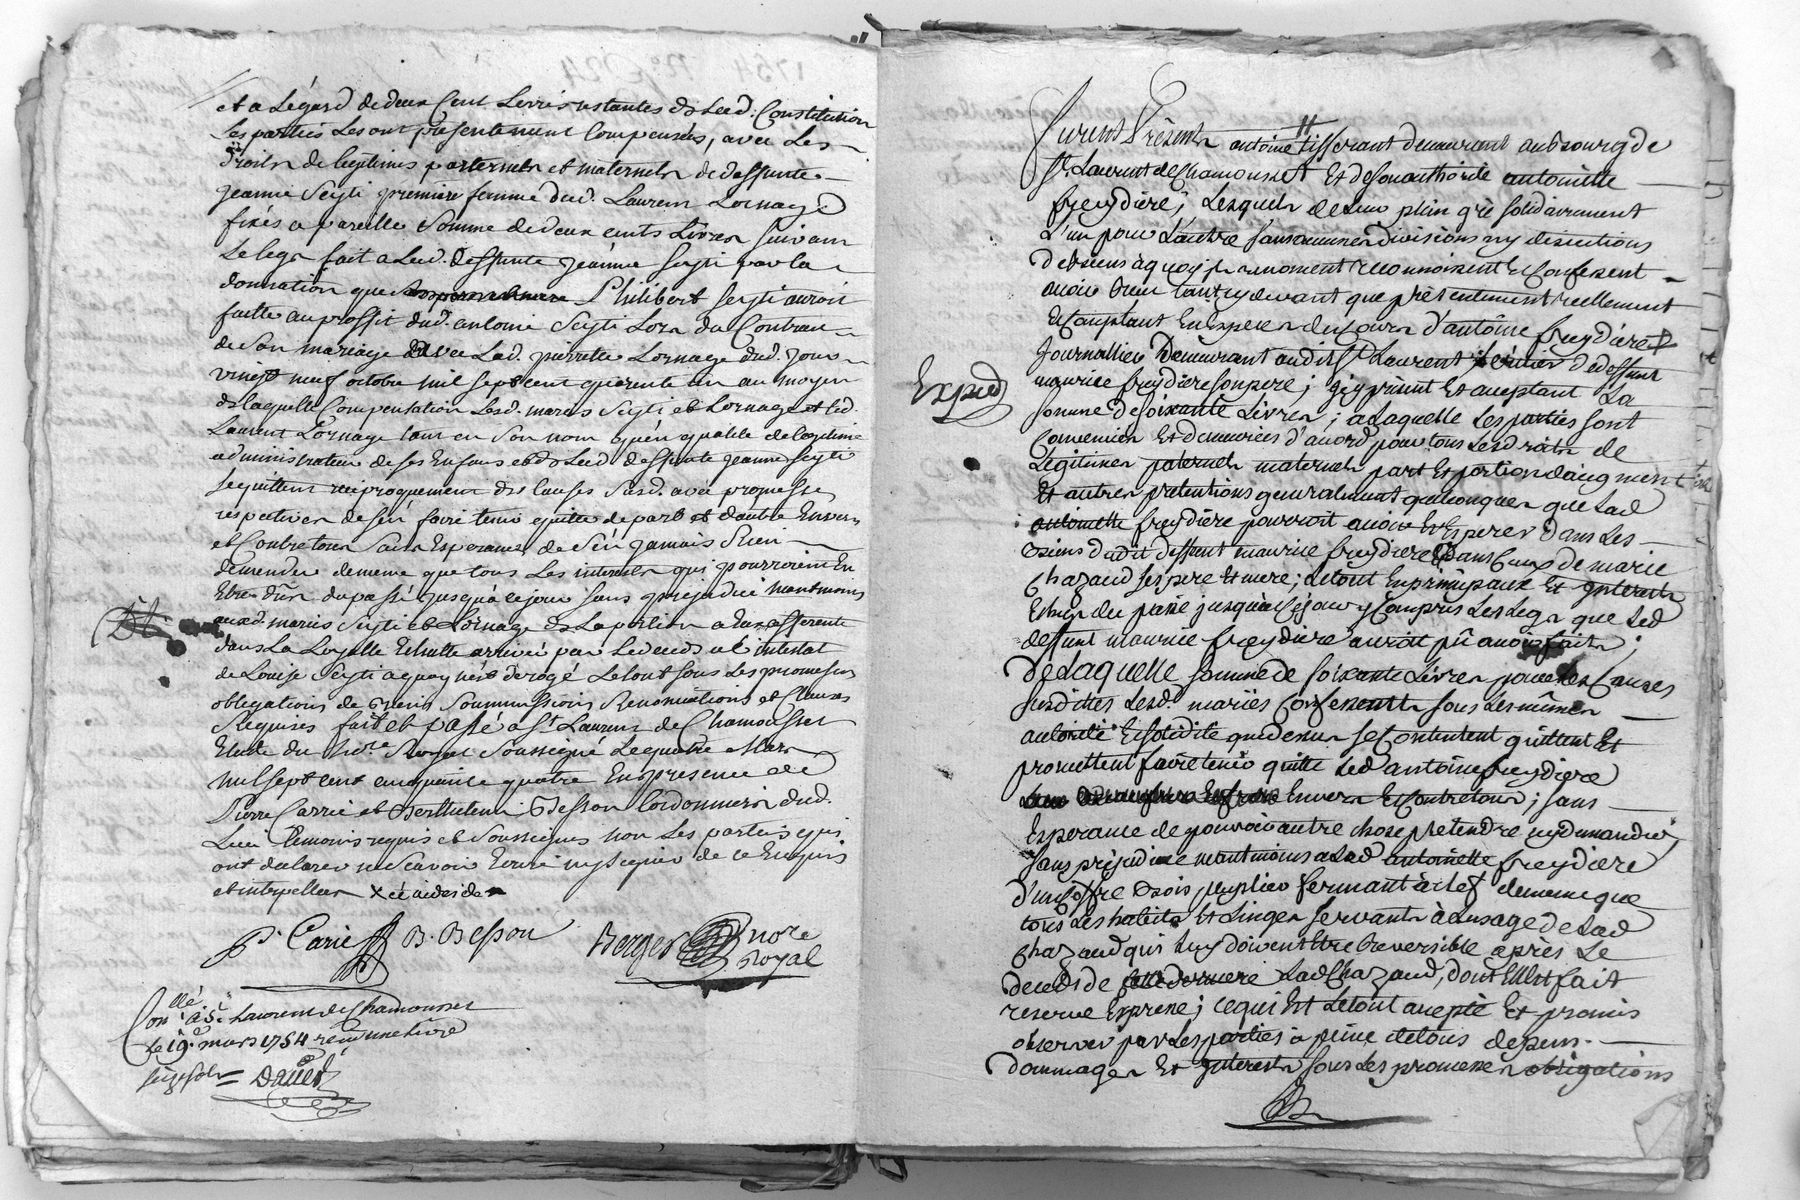 et a Légard de deux Cent Livres restantes de Lad. Constitution
Les parties Les ont présentement Compensées, avec Les
droits de legitimes paternels et maternels de deffunte
jeanne Seyti premiere femme dud. Laurent Lornage
fixés a pareille Somme de deux cents Livres suivant
Le legs fait a Lad. deffunte jeanne seyti par la
donnation que Philibert seyti auroit
faitte au proffit dud. antoine Seyti Lors du Contrac
de Son mariage avec Lad. pierrette Lornage dud. jour
vingt neuf octobre mil sept cent quarente un au moyen
de laquelle Compensation Lesd. mariés Seyti et Lornage et led.
Laurent Lornage tant en Son nom qu'en qualité de legitime
administrateur de ses Enfans et de Lad. deffunte jeanne seyti
se quittent reciproquement des Causes Susd. avec promesses
respectives de s'en faire tenir quitte de part et d'autre Envers
et Contre tous Sans Esperance de S'en jamais Rien
demender de meme que tous Les interests qui pourroient En
Etre dûs du passé jusqu'a ce jour sans prejudice neantmoins
auxd. mariés Seyti et Lornage de La portion a Eux afferente
dans La Loyalle Echutte arrivée par Le deceds ab intestat
de Louise Seyti a quoy n'est derogé Le tout sous Les promesses
obligations de Biens Soummissions Renonciations et Clauses
Requises fait et passé a St. Laurent de Chamousset
Etude du nore. Royal Soussigné Le quatre Mars
mil sept cent cinquante quatre En presence de
Pierre Carrie et Berthelemi Besson Cordonniers dud.
Lieu temoins requis et Soussignés non Les parties qui
ont declaré ne Scavoir Ecrire ny signer de ce Enquis
et interpellées
P. Carie B. Besson Berger nore
Royal
Conllé à St. Laurent de Chamousset
le 19e. mars 1754 reçu une livre
seize sols
Furent Présents antoine tisserant demeurant au bourg de
St. Laurent de Chamousset Et de son authorité antoinette
freydiere, Lesquels de Leur plein gré solidairement
L'un pour L'autre sans aucunes divisions ny discutions
De biens a quoy ils renoncent reconnoissent Et Confessent
avoir Receu tant cy devant que présentement reellement
Et Comptant En Especes de Cours d'antoine freydiere
Journallier Demeurant audit St. Laurent, heritier de deffunt
Exped
maurice freydiere son pere; icy present Et acceptant La
somme de soixante Livres; a Laquelle Les parties sont
Convenües Et demeurées d'accord pour tous Les droits de
Légitimes paternels maternels part Et portion d'augment
Et autres pretentions generalement quelconques que Lad
antoinette freydiere pourroit avoir Et Esperer dans Les
Biens dudit deffunt maurice freydiere Dans Ceux de marie
Chazaud ses pere Et mere; Le tout En principaux Et Interests
Echus du passé jusqu'à Ce jour y Compris Les Legs que Led
deffunt maurice freydiere auroit pû avoir faits;
De Laquelle somme de soixante Livres pour Les Causes
susdittes Lesd. mariés Confessants sous Les mêmes
authorité Et solidité que dessus se Contentent quittent Et
promettent faire tenir quitte Led antoine freydiere
Envers Et Contre tous; sans
Esperance de pouvoir autre chose pretendre ny demander,
sans préjudice neantmoins a Lad antoinette freydiere
d'un Coffre Bois peuplier fermant à clef de meme que
tous Les habits Et Linges servants à L'usage de Lad
Chazaud qui Luy doivent Etre Reversible après Le
deceds de Lad Chazaud, dont Elle fait
reserve Expresse; ce qui Est Le tout accepté Et promis
observer par Les parties à peine de tous depens
dommages Et Interests sous Les promesses obligations